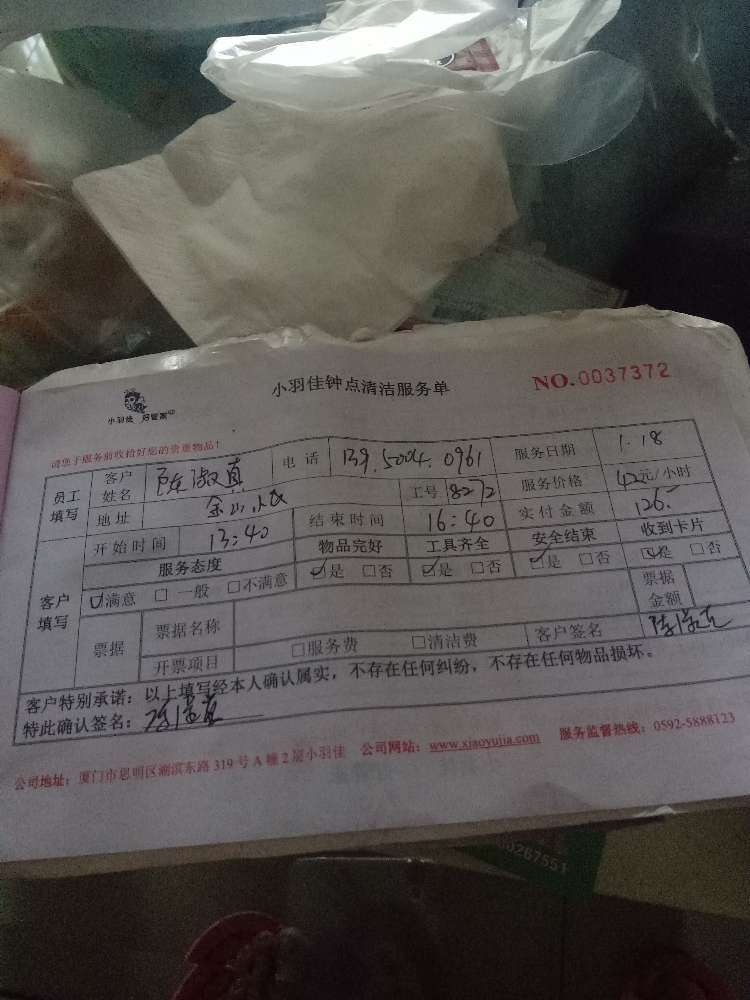 小羽佳 好管家
小羽佳钟点清洁服务单
NO.0037372
请您于服务前收拾好您的贵重物品！
员工填写 客户姓名 陈淑真 电话 139.5004.0961 服务日期 1.18
地址 金山小区 工号 8272 服务价格 42元/小时
开始时间 13:40 结束时间 16:40 实付金额 126.
客户填写 服务态度 物品完好 工具齐全 安全结束 收到卡片
☑满意 □一般 □不满意 ☑是 □否 ☑是 □否 ☑是 □否 ☑是 □否
票据 票据名称 票据金额
开票项目 □服务费 □清洁费 客户签名
客户特别承诺：以上填写经本人确认属实，不存在任何纠纷，不存在任何物品损坏。
特此确认签名：
公司地址：厦门市思明区湖滨东路319号A幢2层小羽佳 公司网站：www.xiaoyujia.com 服务监督热线：0592-5888123
00267551